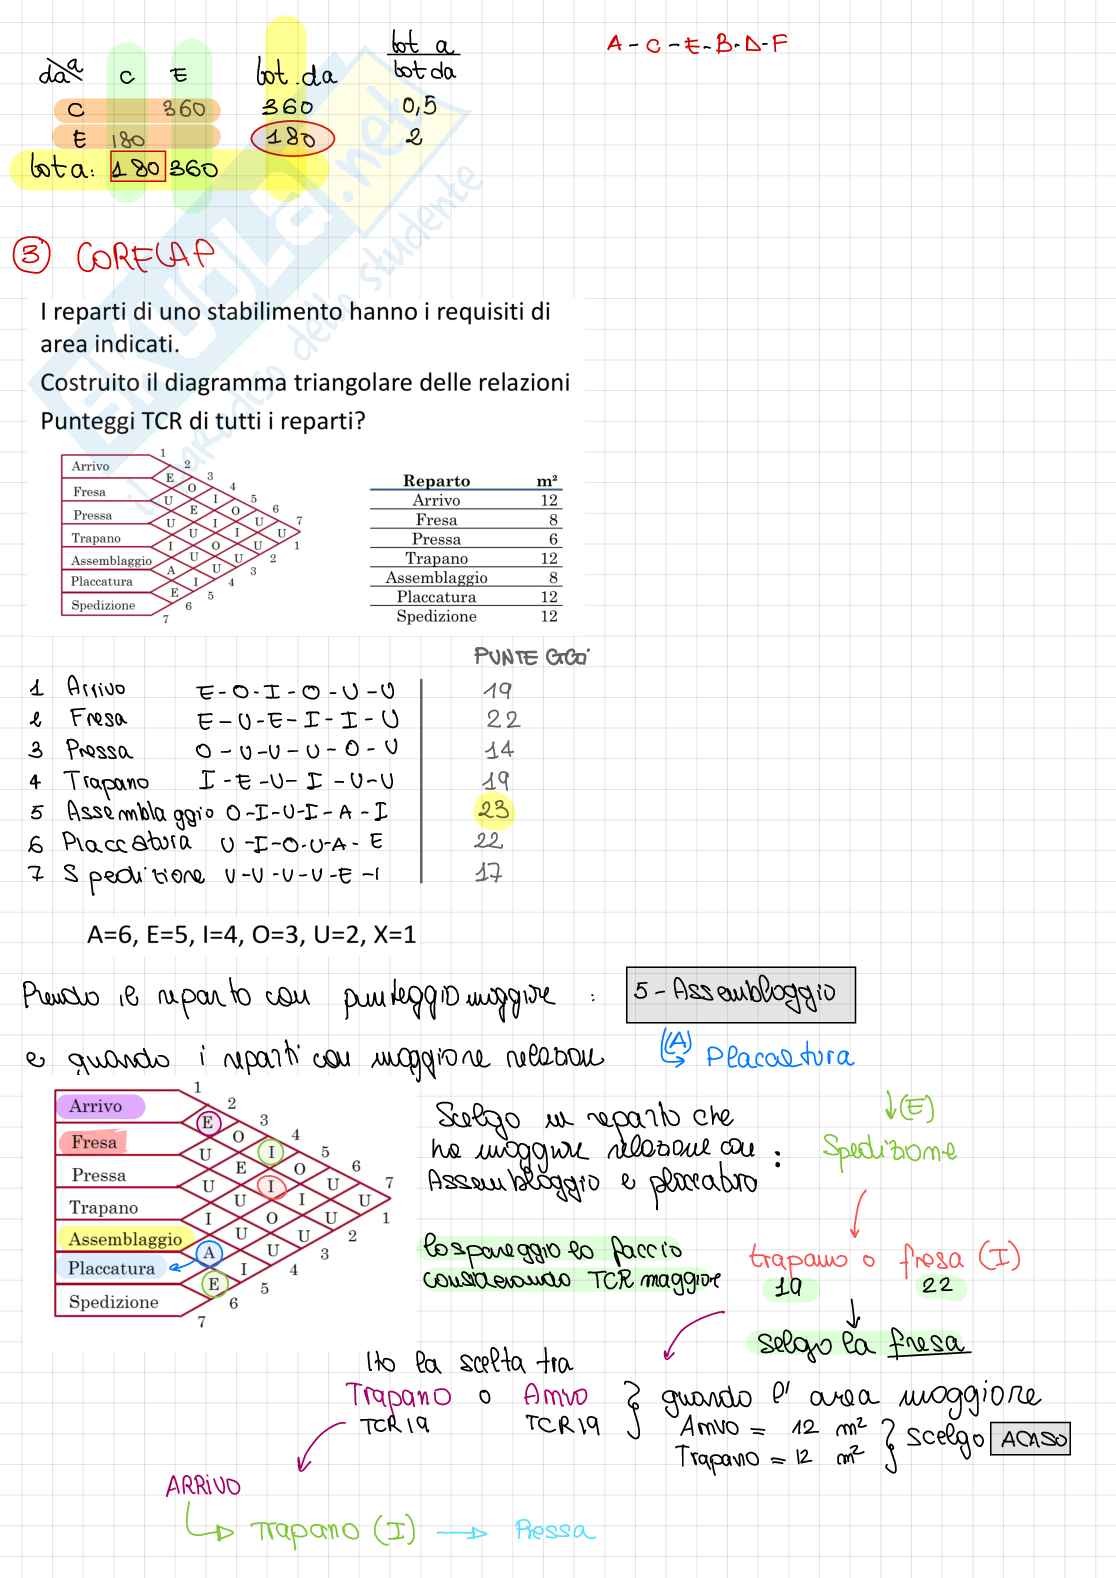 A - C - E - B - D - F
da a C E tot. da tot a / tot da
C 360 360 0,5
E 180 180 2
tot a: 180 360
3 CORELAP
I reparti di uno stabilimento hanno i requisiti di
area indicati.
Costruito il diagramma triangolare delle relazioni
Punteggi TCR di tutti i reparti?
Arrivo
Fresa
Pressa
Trapano
Assemblaggio
Placcatura
Spedizione
Reparto m²
Arrivo 12
Fresa 8
Pressa 6
Trapano 12
Assemblaggio 8
Placcatura 12
Spedizione 12
PUNTEGGI
1 Arrivo E-O-I-O-U-U 19
2 Fresa E-U-E-I-I-U 22
3 Pressa O-U-U-U-O-U 14
4 Trapano I-E-U-I-U-U 19
5 Assemblaggio O-I-U-I-A-I 23
6 Placcatura U-I-O-U-A-E 22
7 Spedizione U-U-U-U-E-I 17
A=6, E=5, I=4, O=3, U=2, X=1
Prendo il reparto con punteggio maggiore : 5-Assemblaggio
e guardo i reparti con maggiore relazione (A) Placcatura
Arrivo
Fresa
Pressa
Trapano
Assemblaggio
Placcatura
Spedizione
Scelgo un reparto che
ha maggiore relazione con :
Assemblaggio e placcatura
(E)
Spedizione
lo spareggio lo faccio
considerando TCR maggiore
trapano o fresa (I)
19 22
scelgo la fresa
Ho la scelta tra
Trapano o Arrivo
TCR 19 TCR 19
guardo l'area maggiore
Arrivo = 12 m²
Trapano = 12 m²
scelgo A CASO
ARRIVO
Trapano (I) → Pressa
SKUOLA.net